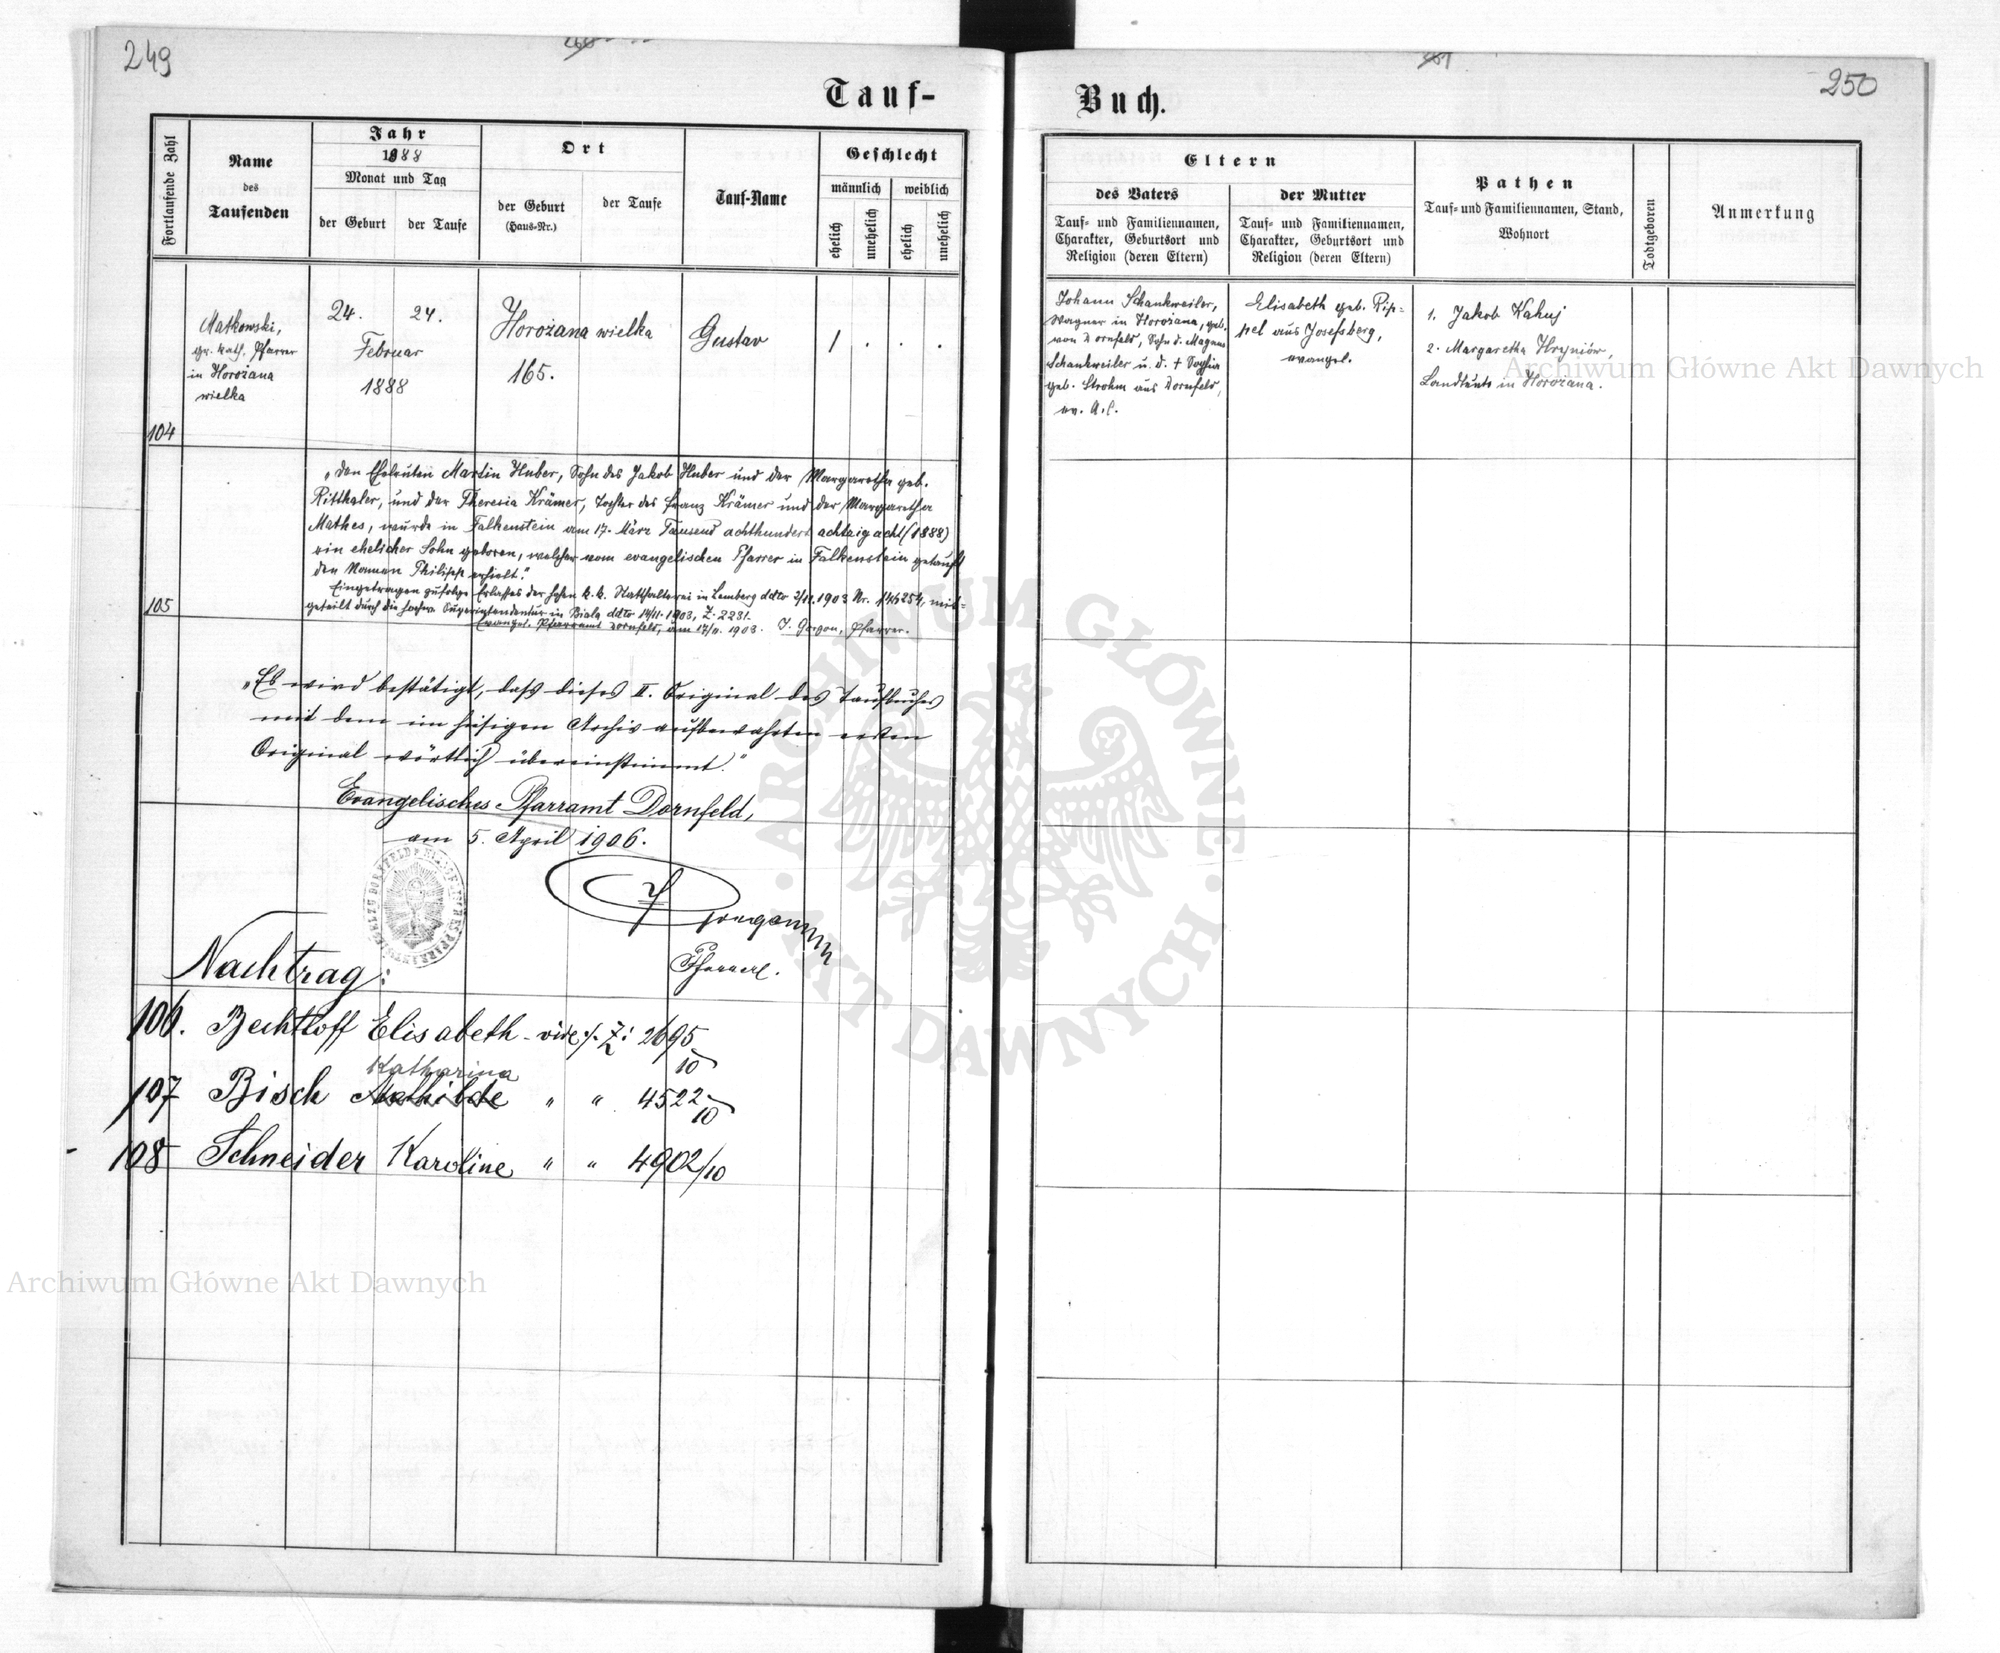 249
Tauf-
Fortlaufende Zahl
Name
des
Taufenden
Jahr
1888
Monat und Tag
der Geburt
der Taufe
Ort
der Geburt
(Haus-Nr.)
der Taufe
Tauf-Name
Geschlecht
männlich
weiblich
ehelich
unehelich
ehelich
unehelich
104
Matkowski,
gr. kath. Pfarrer
in Horożana
wielka
24. 24.
Februar
1888
Horożana wielka
165.
Gustav
1 . . .
105
„Den Eheleuten Martin Huber, Sohn des Jakob Huber und der Margaretha geb.
Ritthaler, und der Theresia Krämer, Tochter des Franz Krämer und der Margaretha
Mathes, wurde in Falkenstein am 17. März Tausend achthundert achtzig acht (1888)
ein ehelicher Sohn geboren, welcher vom evangelischen Pfarrer in Falkenstein getauft
den Namen Philipp erhielt."
Eingetragen zufolge Erlasses der hohen k. k. Statthalterei in Lemberg ddto 2/11. 1903 Nr. 146254, mit-
geteilt durch die hochw. Superintendentur in Biala ddto 14/11. 1903, Z. 2231.
Evangel. Pfarramt Dornfeld, am 17/11. 1903. J. Gorgon, Pfarrer.
„Es wird bestätigt, daß dieses II. Original des Taufbuches
mit dem im hiesigen Archiv aufbewahrten ersten
Original wörtlich übereinstimmt."
Evangelisches Pfarramt Dornfeld,
am 5. April 1906.
Pfarrer.
Nachtrag:
106. Bechtloff Elisabeth - vide ./. Z: 2695/10
Katharina
107 Bisch Mathilde " " 4522/10
108 Schneider Karoline " " 4902/10
250
Buch.
Eltern
des Vaters
Tauf- und Familiennamen,
Charakter, Geburtsort und
Religion (deren Eltern)
der Mutter
Tauf- und Familiennamen,
Charakter, Geburtsort und
Religion (deren Eltern)
Pathen
Tauf- und Familiennamen, Stand,
Wohnort
Todtgeboren
Anmerkung
Johann Schankweiler,
Wagner in Horożana, geb.
von Dornfeld, Sohn d. Magnus
Schankweiler u. d. † Sophia
geb. Strohm aus Dornfeld,
ev. A. C.
Elisabeth geb. Rip-
pel aus Josefsberg,
evangel.
1. Jakob Kahuj
2. Margaretha Hryniów,
Landleute in Horożana.
Archiwum Główne Akt Dawnych
Archiwum Główne Akt Dawnych
ARCHIWUM GŁÓWNE · AKT DAWNYCH ·